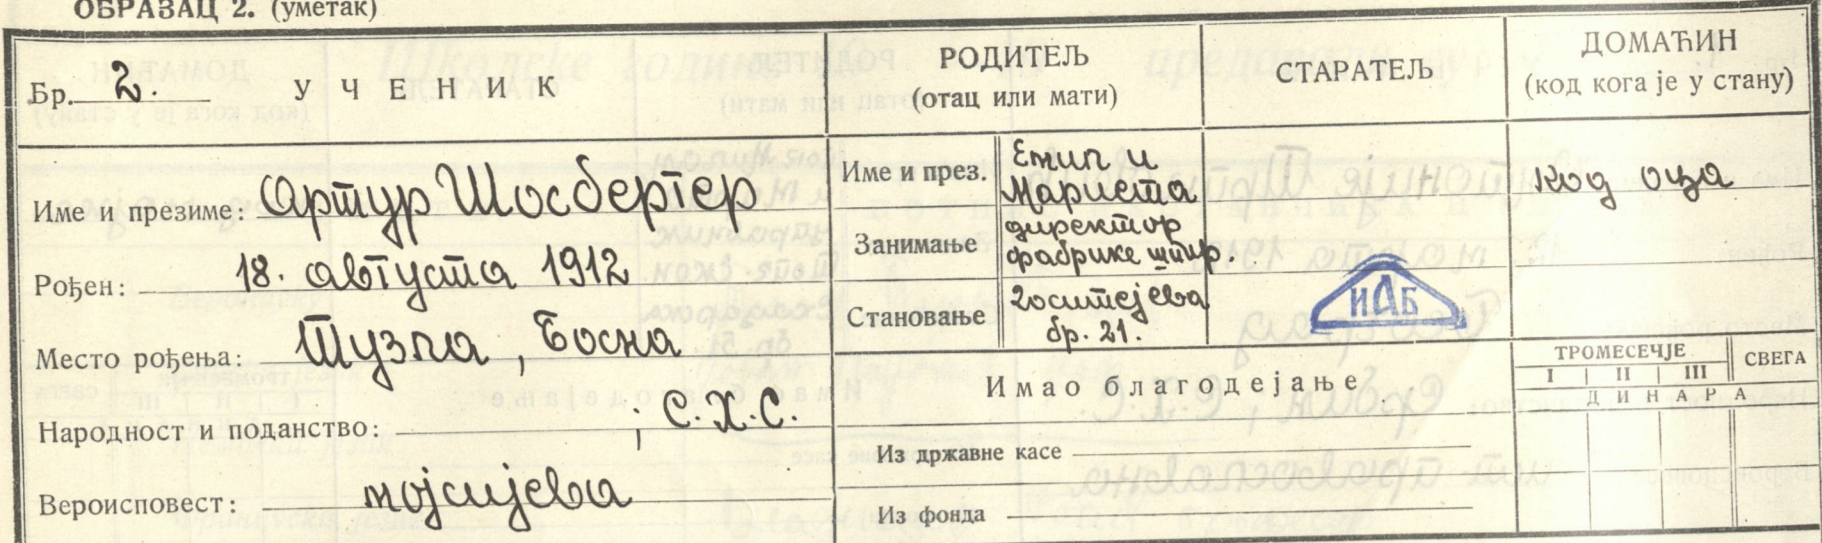 ОБРАЗАЦ 2. (уметак)
Бр. 2. УЧЕНИК
РОДИТЕЉ
(отац или мати)
СТАРАТЕЉ
ДОМАЋИН
(код кога је у стану)
Име и презиме: Артур Шосбергер
Рођен: 18. августа 1912
Место рођења: Тузла, Босна
Народност и поданство: ; С.Х.С.
Вероисповест: мојсијева
Име и през. Емил и
Мариета
Занимање директор
фабрике шпир.
Становање
бр. 21.
код оца
ИАБ
Имао благодејање
Из државне касе
Из фонда
ТРОМЕСЕЧЈЕ СВЕГА
I II III
ДИНАРА